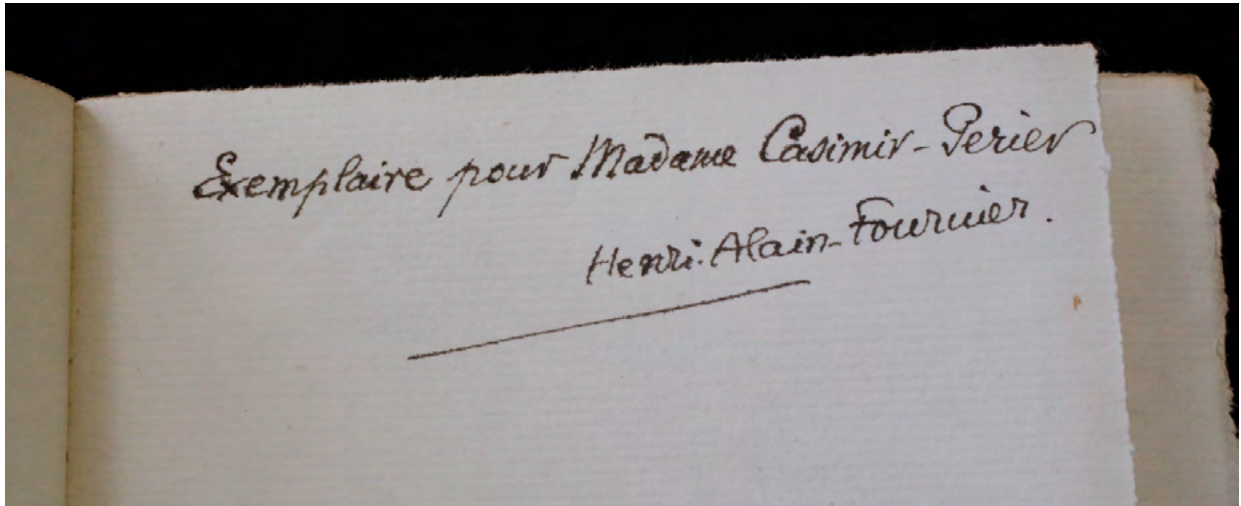 Exemplaire pour Madame Casimir-Perier
Henri-Alain-Fournier.